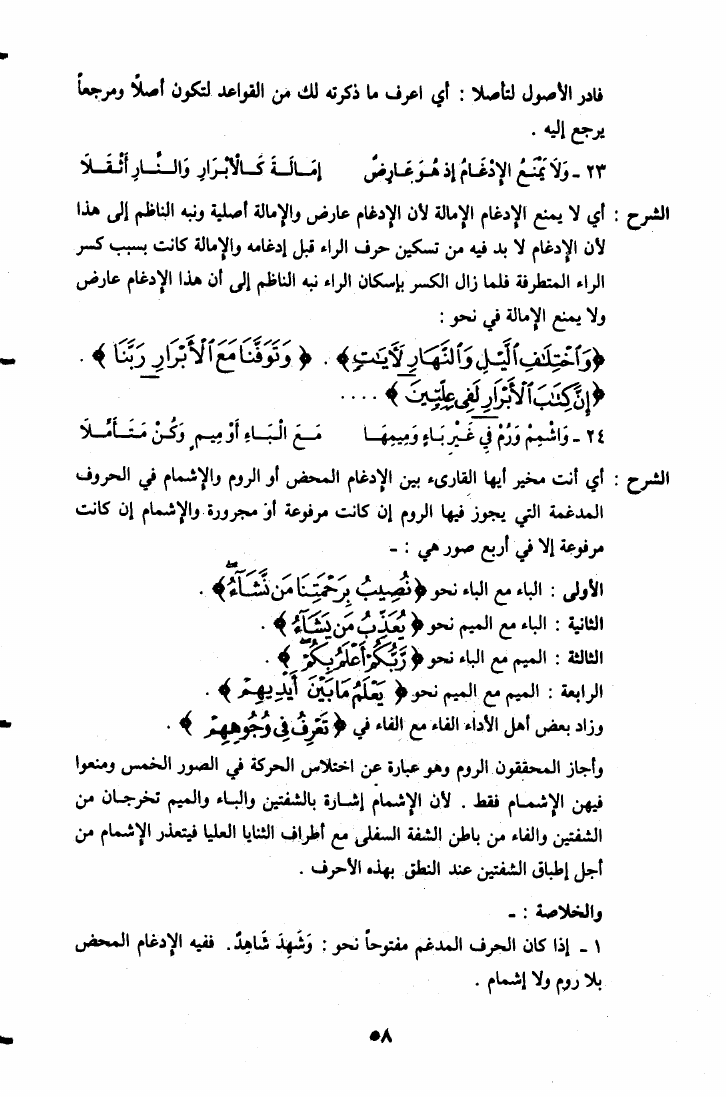 فادر الأصول لتأصلا : أي اعرف ما ذكرته لك من القواعد لتكون أصلاً ومرجعاً
يرجع إليه .
٢٣ - وَلاَ يَمْنَعُ الإِدْغَامُ إِذْ هُوَ عَارِضٌ إِمَالَةَ كَالأَبْرَارِ وَالنَّارِ أَثْقَلَا
الشرح : أي لا يمنع الإدغام الإمالة لأن الإدغام عارض والإمالة أصلية ونبه الناظم إلى هذا
لأن الإدغام لا بد فيه من تسكين حرف الراء قبل إدغامه والإمالة كانت بسبب كسر
الراء المتطرفة فلما زال الكسر بإسكان الراء نبه الناظم إلى أن هذا الإدغام عارض
ولا يمنع الإمالة في نحو :
﴿وَٱخْتِلَٰفِ ٱلَّيْلِ وَٱلنَّهَارِ لَآيَٰتٍ﴾ . ﴿ وَتَوَفَّنَا مَعَ ٱلْأَبْرَارِ رَبَّنَا ﴾ .
﴿إِنَّ كِتَٰبَ ٱلْأَبْرَارِ لَفِى عِلِّيِّينَ ﴾ ....
٢٤ - وَاشْمِمْ وَرُمْ فِي غَيْرِ بَاءٍ وَمِيمِهَا مَعَ الْبَاءِ أَوْ مِيمٍ وَكُنْ مُتَأَمِّلَا
الشرح : أي أنت مخير أيها القارىء بين الإدغام المحض أو الروم والإشمام في الحروف
المدغمة التي يجوز فيها الروم إن كانت مرفوعة أو مجرورة والإشمام إن كانت
مرفوعة إلا في أربع صور هي : -
الأولى : الباء مع الباء نحو ﴿نُصِيبُ بِرَحْمَتِنَا مَن نَّشَآءُ﴾ .
الثانية : الباء مع الميم نحو ﴿ يُعَذِّبُ مَن يَشَآءُ ﴾ .
الثالثة : الميم مع الباء نحو ﴿ رَّبُّكُمْ أَعْلَمُ بِكُمْ ﴾ .
الرابعة : الميم مع الميم نحو ﴿ يَعْلَمُ مَا بَيْنَ أَيْدِيهِمْ ﴾ .
وزاد بعض أهل الأداء الفاء مع الفاء في ﴿ تَعْرِفُ فِى وُجُوهِهِمْ ﴾ .
وأجاز المحققون الروم وهو عبارة عن اختلاس الحركة في الصور الخمس ومنعوا
فيهن الإشمام فقط . لأن الإشمام إشارة بالشفتين والباء والميم تخرجان من
الشفتين والفاء من باطن الشفة السفلى مع أطراف الثنايا العليا فيتعذر الإشمام من
أجل إطباق الشفتين عند النطق بهذه الأحرف .
والخلاصة : -
١ - إذا كان الحرف المدغم مفتوحاً نحو : وَشَهِدَ شَاهِدٌ. ففيه الإدغام المحض
بلا روم ولا إشمام .
٥٨